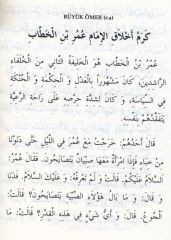 BÜYÜK ÖMER (r.a)
كَرَمُ أَخْلَاقِ الْإِمَامِ عُمَرَ بْنِ الْخَطَّابِ
عُمَرُ بْنُ الْخَطَّابِ هُوَ الْخَلِيفَةُ الثَّانِي مِنَ الْخُلَفَاءِ
الرَّاشِدِينَ، كَانَ مَشْهُورًا بِالْعَدْلِ وَ الْحِكْمَةِ وَ الْحُنْكَةِ
فِي السِّيَاسَةِ، وَ كَانَ لِشِدَّةِ حِرْصِهِ عَلَى رَاحَةِ الرَّعِيَّةِ
يَتَفَقَّدُهُمْ بِنَفْسِهِ.
قَالَ أَحَدُهُمْ: خَرَجْتُ مَعَ عُمَرَ فِي اللَّيْلِ حَتَّى دَنَوْنَا
مِنْ خِبَاءٍ فَإِذَا امْرَأَةٌ مَعَهَا صِبْيَانٌ يَتَصَايَحُونَ. فَقَالَ عُمَرُ:
السَّلَامُ عَلَيْكُمْ. قَالَتْ وَ لَمْ تَعْرِفْهُ: وَ عَلَيْكَ السَّلَامُ. قَالَ:
وَ مَا بَالُ هَؤُلَاءِ الصِّبْيَةِ يَتَصَايَحُونَ؟ قَالَتْ: مِنَ
الْجُوعِ. قَالَ: وَ أَيُّ شَيْءٍ فِي هَذِهِ الْقِدْرِ؟ قَالَتْ: مَا